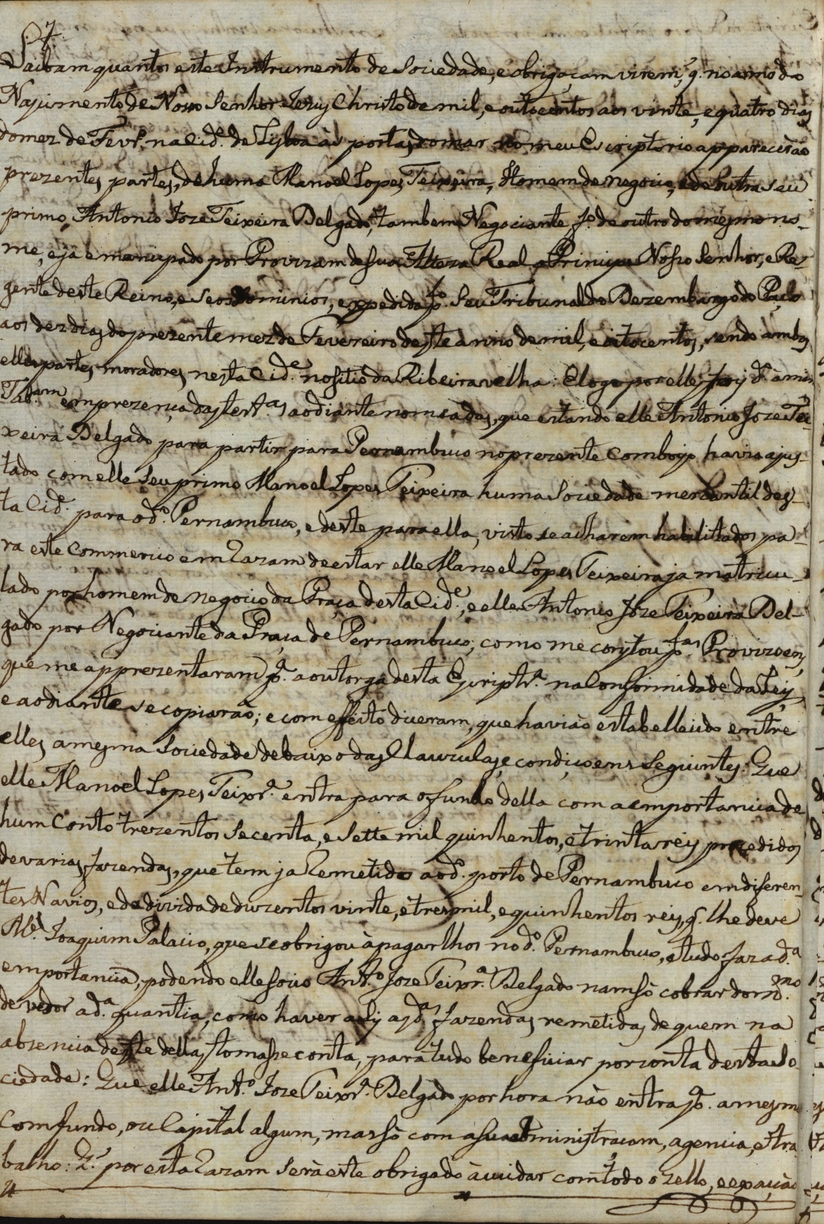 Saibam quantos este Instrumento de Sociedade, e obrigaçam virem, q. no anno do
Nascimento de Nosso Senhor Jezuz Christo de mil, e outocentos aos vinte, e quatro dias
domez de Fevr.º na Cid.e de Lixboa às portas domar no meu Escriptorio apparecerão
prezentes partes, de huma Manoel Lopes Teixeira, Homem de negocio, e da outra seu
primo, Antonio Joze Teixeira Delgado, tambem Negociante, f.º de outro do mesmo no-
me, e já emancipado por Provizam de sua Alteza Real, o Principe Nosso Senhor, e Re-
gente deste Reino, e seos Dominios, expedida p.º Seu Tribunal do Dezembargo do Paço
aos dez dias do prezente mez de Fevereiro deste anno de mil, e oitocentos, sendo ambos
elles partes moradores nesta Cid.e no sitio da Ribeira velha: E logo por elles foy d.º a mim
Tab.am em prezença das test.as ao diante nomeadas, que estando elle Antonio Joze Tei-
xeira Delgado para partir para Pernambuco no prezente Comboyo havia ajus-
tado com elle seu primo Manoel Lopes Teixeira huma Sociedade mercantil des-
ta Cid.e para o d.º Pernambuco, e deste para ella, visto se acharem habilitados pa-
ra este Commercio em Razam de estar elle Manoel Lopes Teixeira ja matricu-
lado por homem de negocio da Praça desta Cid.e, e elle Antonio Joze Teixeira Del-
gado por Negociante da Praça de Pernambuco, como me constou p.las Provizoens,
que me apprezentaram p.ª a outorga desta Escriptr.ª na Conformidade da Ley,
e ao diante se copiarão; e com effeito diceram, que havião estabellecido entre
elles a mesma Sociedade debaixo das Clauzulas, e condiçoens Seguintes: Que
elle Manoel Lopes Teixr.ª entra para o fundo della com a emportancia de
hum Conto trezentos secenta, e sette mil quinhentos, e trinta reis, procedidos
de varias fazendas, que tem ja Remetido ao d.º porto de Pernambuco em diferen-
tes Navios, e da divida de duzentos vinte, e tres mil, e quinhentos reis, q. lhe deve
M.el Joaquim Palacio, que se obrigou à pagarlhos no d.º Pernambuco, e tudo faz a d.ª
emportancia, podendo elle socio Ant.º Joze Teixr.ª Delgado nam só cobrar do m.mo
devedor a d.ª quantia, como haver a sy as d.as fazendas remetidas de quem na
absencia deste dellas tomasse conta, para tudo beneficiar por conta desta So-
ciedade: Que elle Ant.º Joze Teixr.ª Delgado por hora não entra p.ª a mesma
Com fundo, ou Capital algum, mas só com a sua administracam, agencia, e tra
balho: E por esta Razam será este obrigado à cuidar com todo o zello, e exação